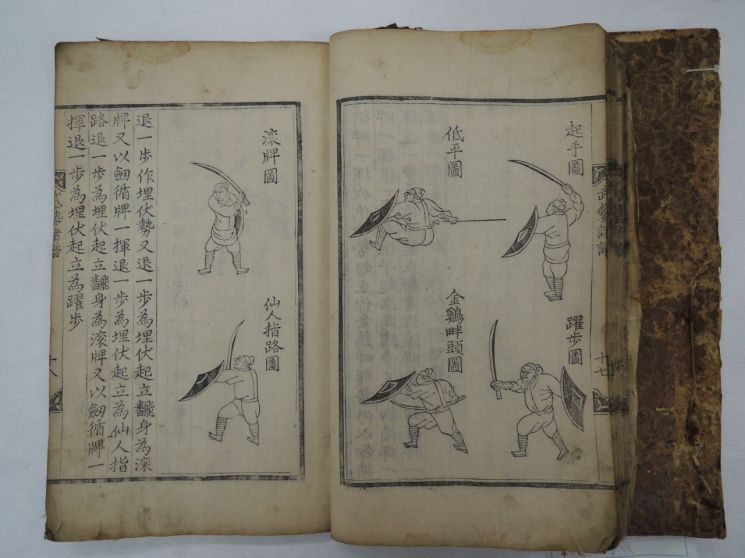 武藝諸譜
十七
起手圖
躍歩圖
低平圖
金鷄畔頭圖
滚牌圖
仙人指路圖
退一歩作埋伏勢又退一歩為埋伏起立飜身為滚
牌又以劔循牌一揮退一歩為埋伏起立為仙人指
路退一歩為埋伏起立飜身為滚牌又以劔循牌一
揮退一歩為埋伏起立為躍歩